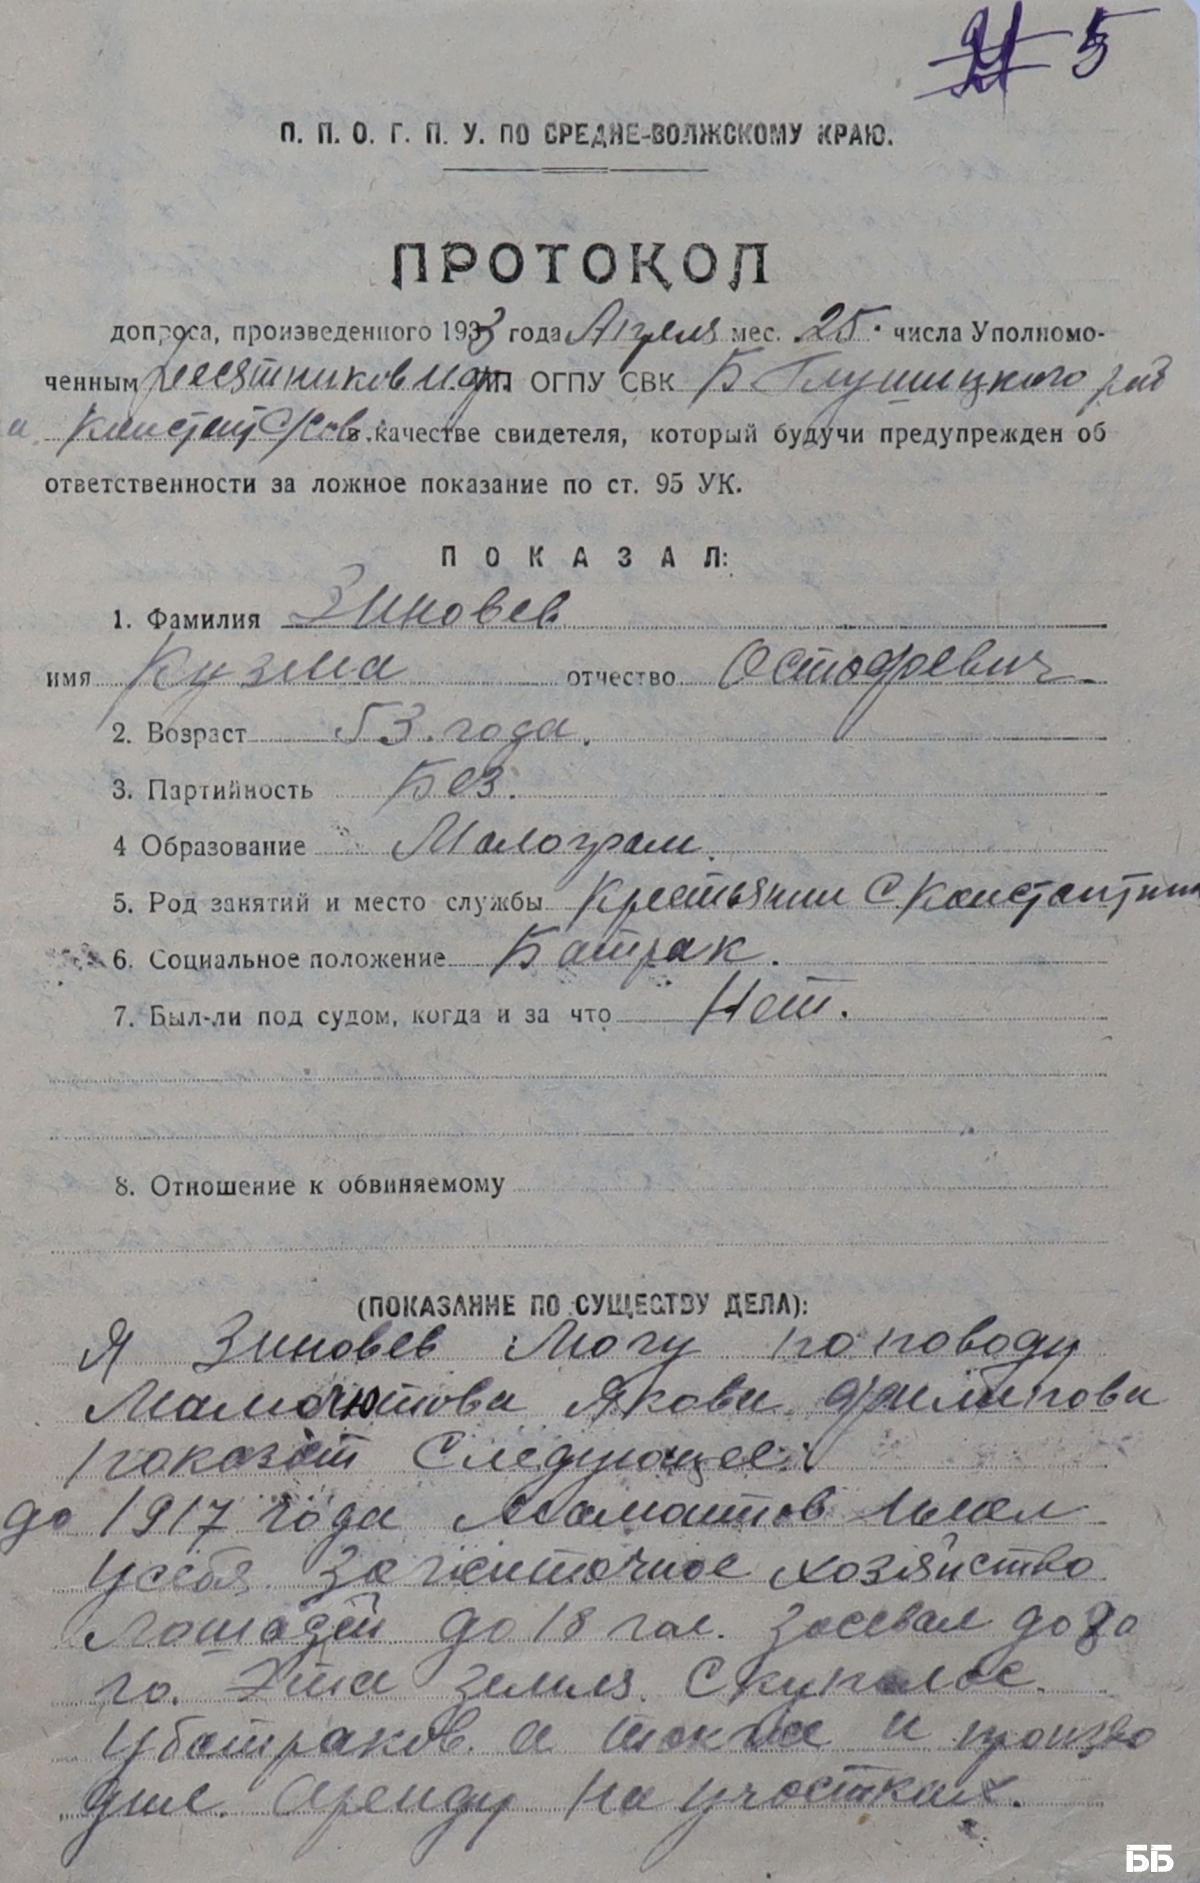 5
П. П. О. Г. П. У. ПО СРЕДНЕ-ВОЛЖСКОМУ КРАЮ.
ПРОТОКОЛ
допроса, произведенного 1933 года Апреля мес. 25. числа Уполномо-
ченным ПП ОГПУ СВК Б Глушицкого
в качестве свидетеля, который будучи предупрежден об
ответственности за ложное показание по ст. 95 УК.
ПОКАЗАЛ:
1. Фамилия Зиновев
имя Кузма отчество Остафревич
2. Возраст 53. года.
3. Партийность Без.
4 Образование Малограм.
5. Род занятий и место службы Крестьянин С Константин
6. Социальное положение Батрак.
7. Был-ли под судом, когда и за что Нет.
8. Отношение к обвиняемому
(ПОКАЗАНИЕ ПО СУЩЕСТВУ ДЕЛА):
Я Зиновев Могу поповоду
Якова
показат Следующее:
до 1917 года Мамаштов Имел
Усебя Зажиточное хозяйство
Лошадей до 18 гол. Засевал до
га. Эта земля Скупалас
Убатраков. а также и произво
дил. Аренду На участках.
ББ